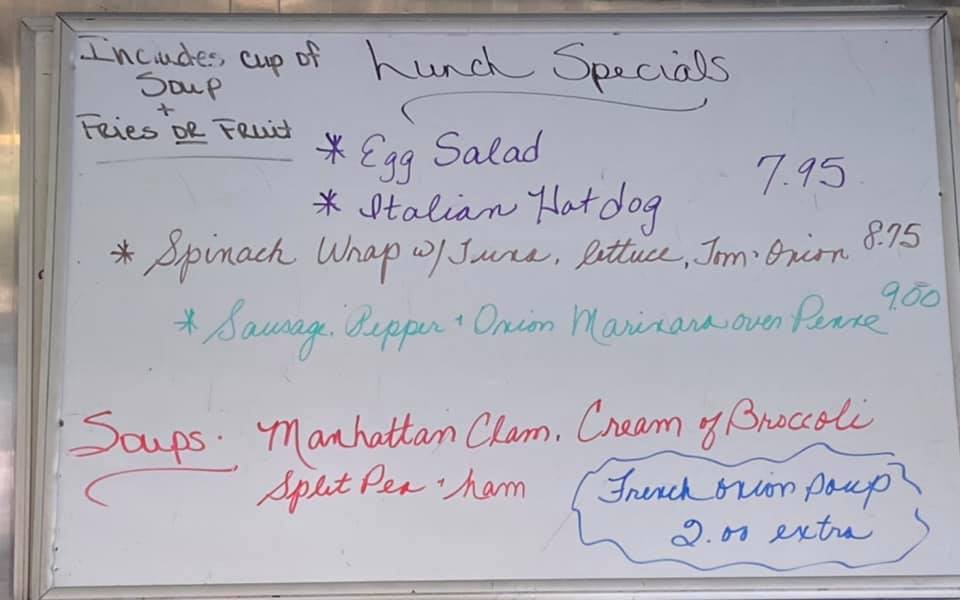 Includes cup of
Soup
+
Fries OR Fruit
Lunch Specials
* Egg Salad
* Italian Hot dog
7.95
* Spinach Wrap w/ Tuna, lettuce, Tom. Onion 8.75
* Sausage, Pepper + Onion Marinara over Penne 9.00
Soups. Manhattan Clam, Cream of Broccoli
Split Pea + ham
French onion soup
2.00 extra